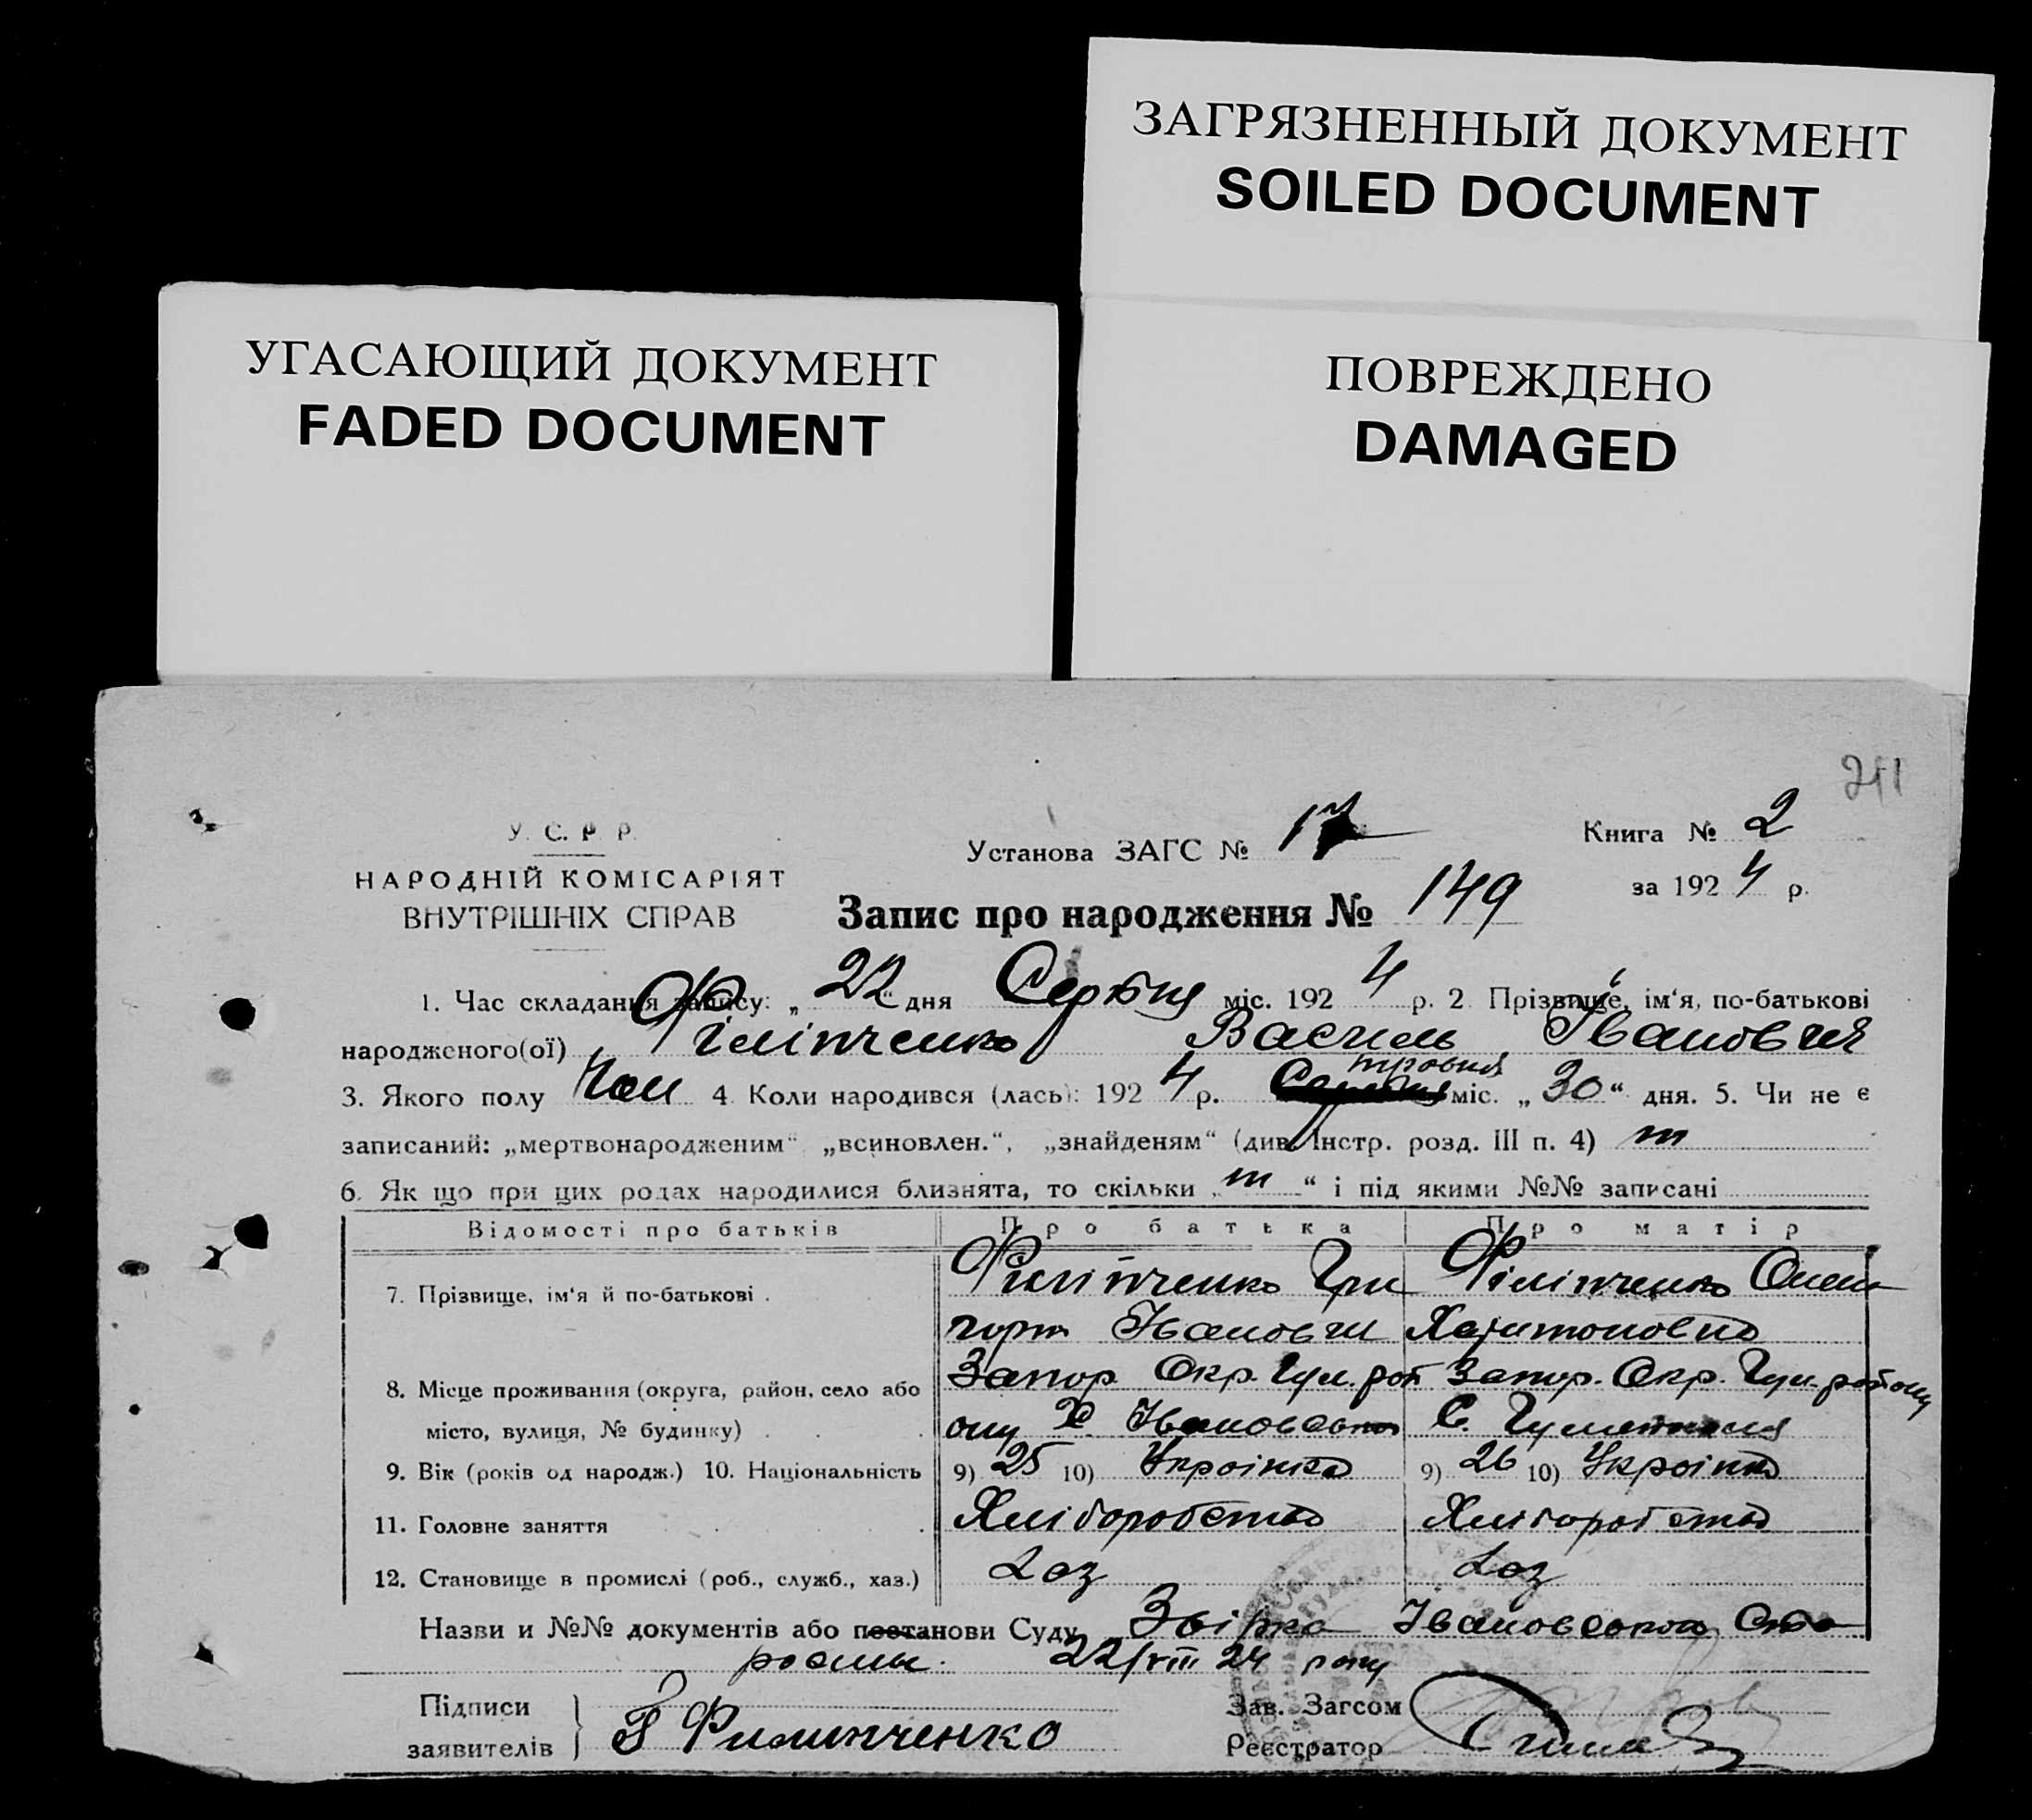 ЗАГРЯЗНЕННЫЙ ДОКУМЕНТ
SOILED DOCUMENT
УГАСАЮЩИЙ ДОКУМЕНТ
FADED DOCUMENT
ПОВРЕЖДЕНО
DAMAGED
241
У. С. Р. Р.
НАРОДНІЙ КОМІСАРІЯТ
ВНУТРІШНІХ СПРАВ
Установа ЗАГС № 17
Книга № 2
за 1924 р.
Запис про народження № 149
1. Час складання запису: „22“ дня Серпня міс. 1924 р. 2 Прізвище, ім‘я, по-батькові
народженого(ої) Філіпченко Василь Іванович
3. Якого полу Чол 4. Коли народився (лась): 1924 р. травня міс. „30“ дня. 5. Чи не є
записаний: „мертвонародженим“ „всиновлен.“, „знайденям“ (див. Інстр. розд. III п. 4)
6. Як що при цих родах народилися близнята, то скільки „ “ і під якими №№ записані
Відомості про батьків Про батька Про матір
7. Прізвище, ім‘я й по-батькові . Филіпченко Гри Філіпченко Олена
Іванович Харитоновна
8. Місце проживання (округа, район, село або Запор. Окр. Гул. рай Запор. Окр. Гул. району
місто, вулиця, № будинку) . . . ону Х. С.
9. Вік (років од народж.) 10. Національність 9) 25 10) 9) 26 10)
11. Головне заняття Хліборобство Хліборобство
12. Становище в промислі (роб., служб., хаз.) Хаз Хаз
Назви и №№ документів або постанови Суду Ивановської
22/VIII 24 року
Підписи
заявителів } Филипченко
Зав. Загсом
Реєстратор